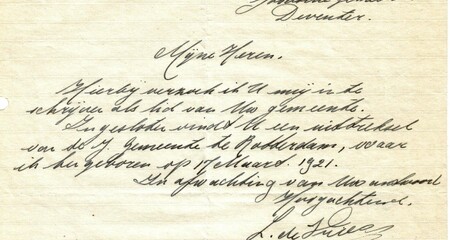 Deventer.
Mijne Heren.
Hierbij verzoek ik U mij in te
schrijven als lid van Uw gemeente.
Ingesloten vindt U een uittreksel
van de I. Gemeente te Rotterdam, waar
ik ben geboren op 17 Maart 1921.
In afwachting van Uw antwoord
Hoogachtend.
L. de